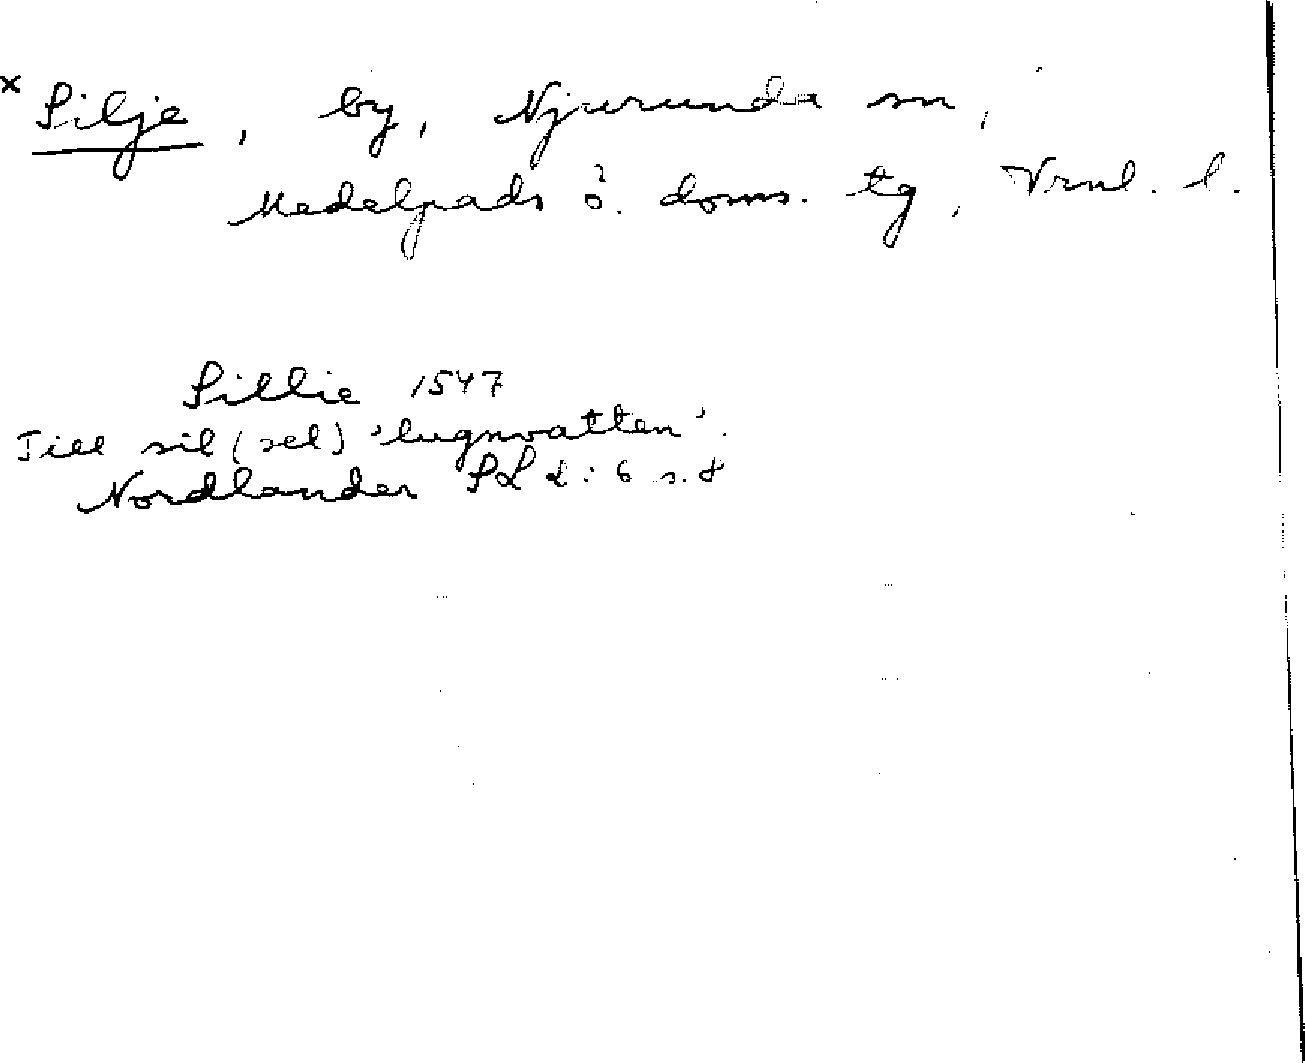 × Silje, by, Njurunda sn,
Medelpads ö. doms. tg, Vrnl. l.
Sillie 1547
Till sil (sel) 'lugnvatten'.
Nordlander SL 2:6 s. 8